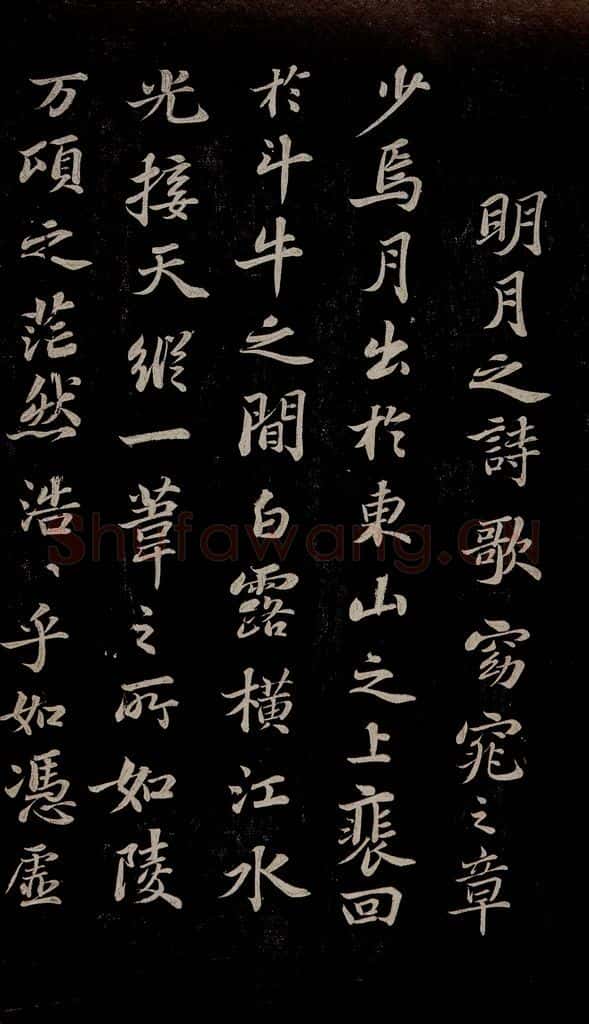 明月之詩歌窈窕之章
少焉月出於東山之上裴回
於斗牛之間白露横江水
光接天縱一葦之所如陵
万頃之茫然浩〻乎如馮虚